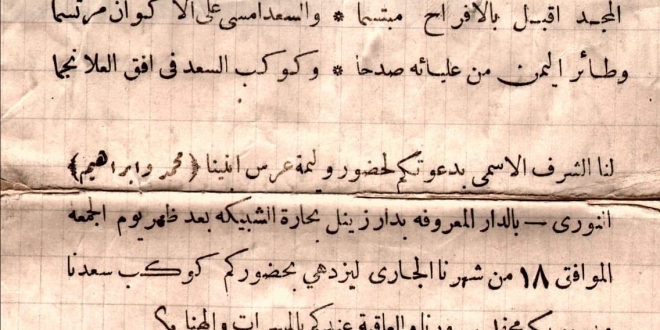 المجد اقبل بالافراح مبتسما * والسعد امسى على الاكوان مرتسما
وطائر اليمن من عليائه صدحا * وكوكب السعد في افق العلا نجما
لنا الشرف الاسمى بدعوتكم لحضور وليمة عرس ابنينا ﴿محمد وابراهيم﴾
النورى — بالدار المعروفه بدار زينل بحارة الشبيكه بعد ظهر يوم الجمعه
الموافق ١٨ من شهرنا الجارى ليزدهي بحضوركم كوكب سعدنا
والعاقبة عندكم بالمسرات والهنا م؟